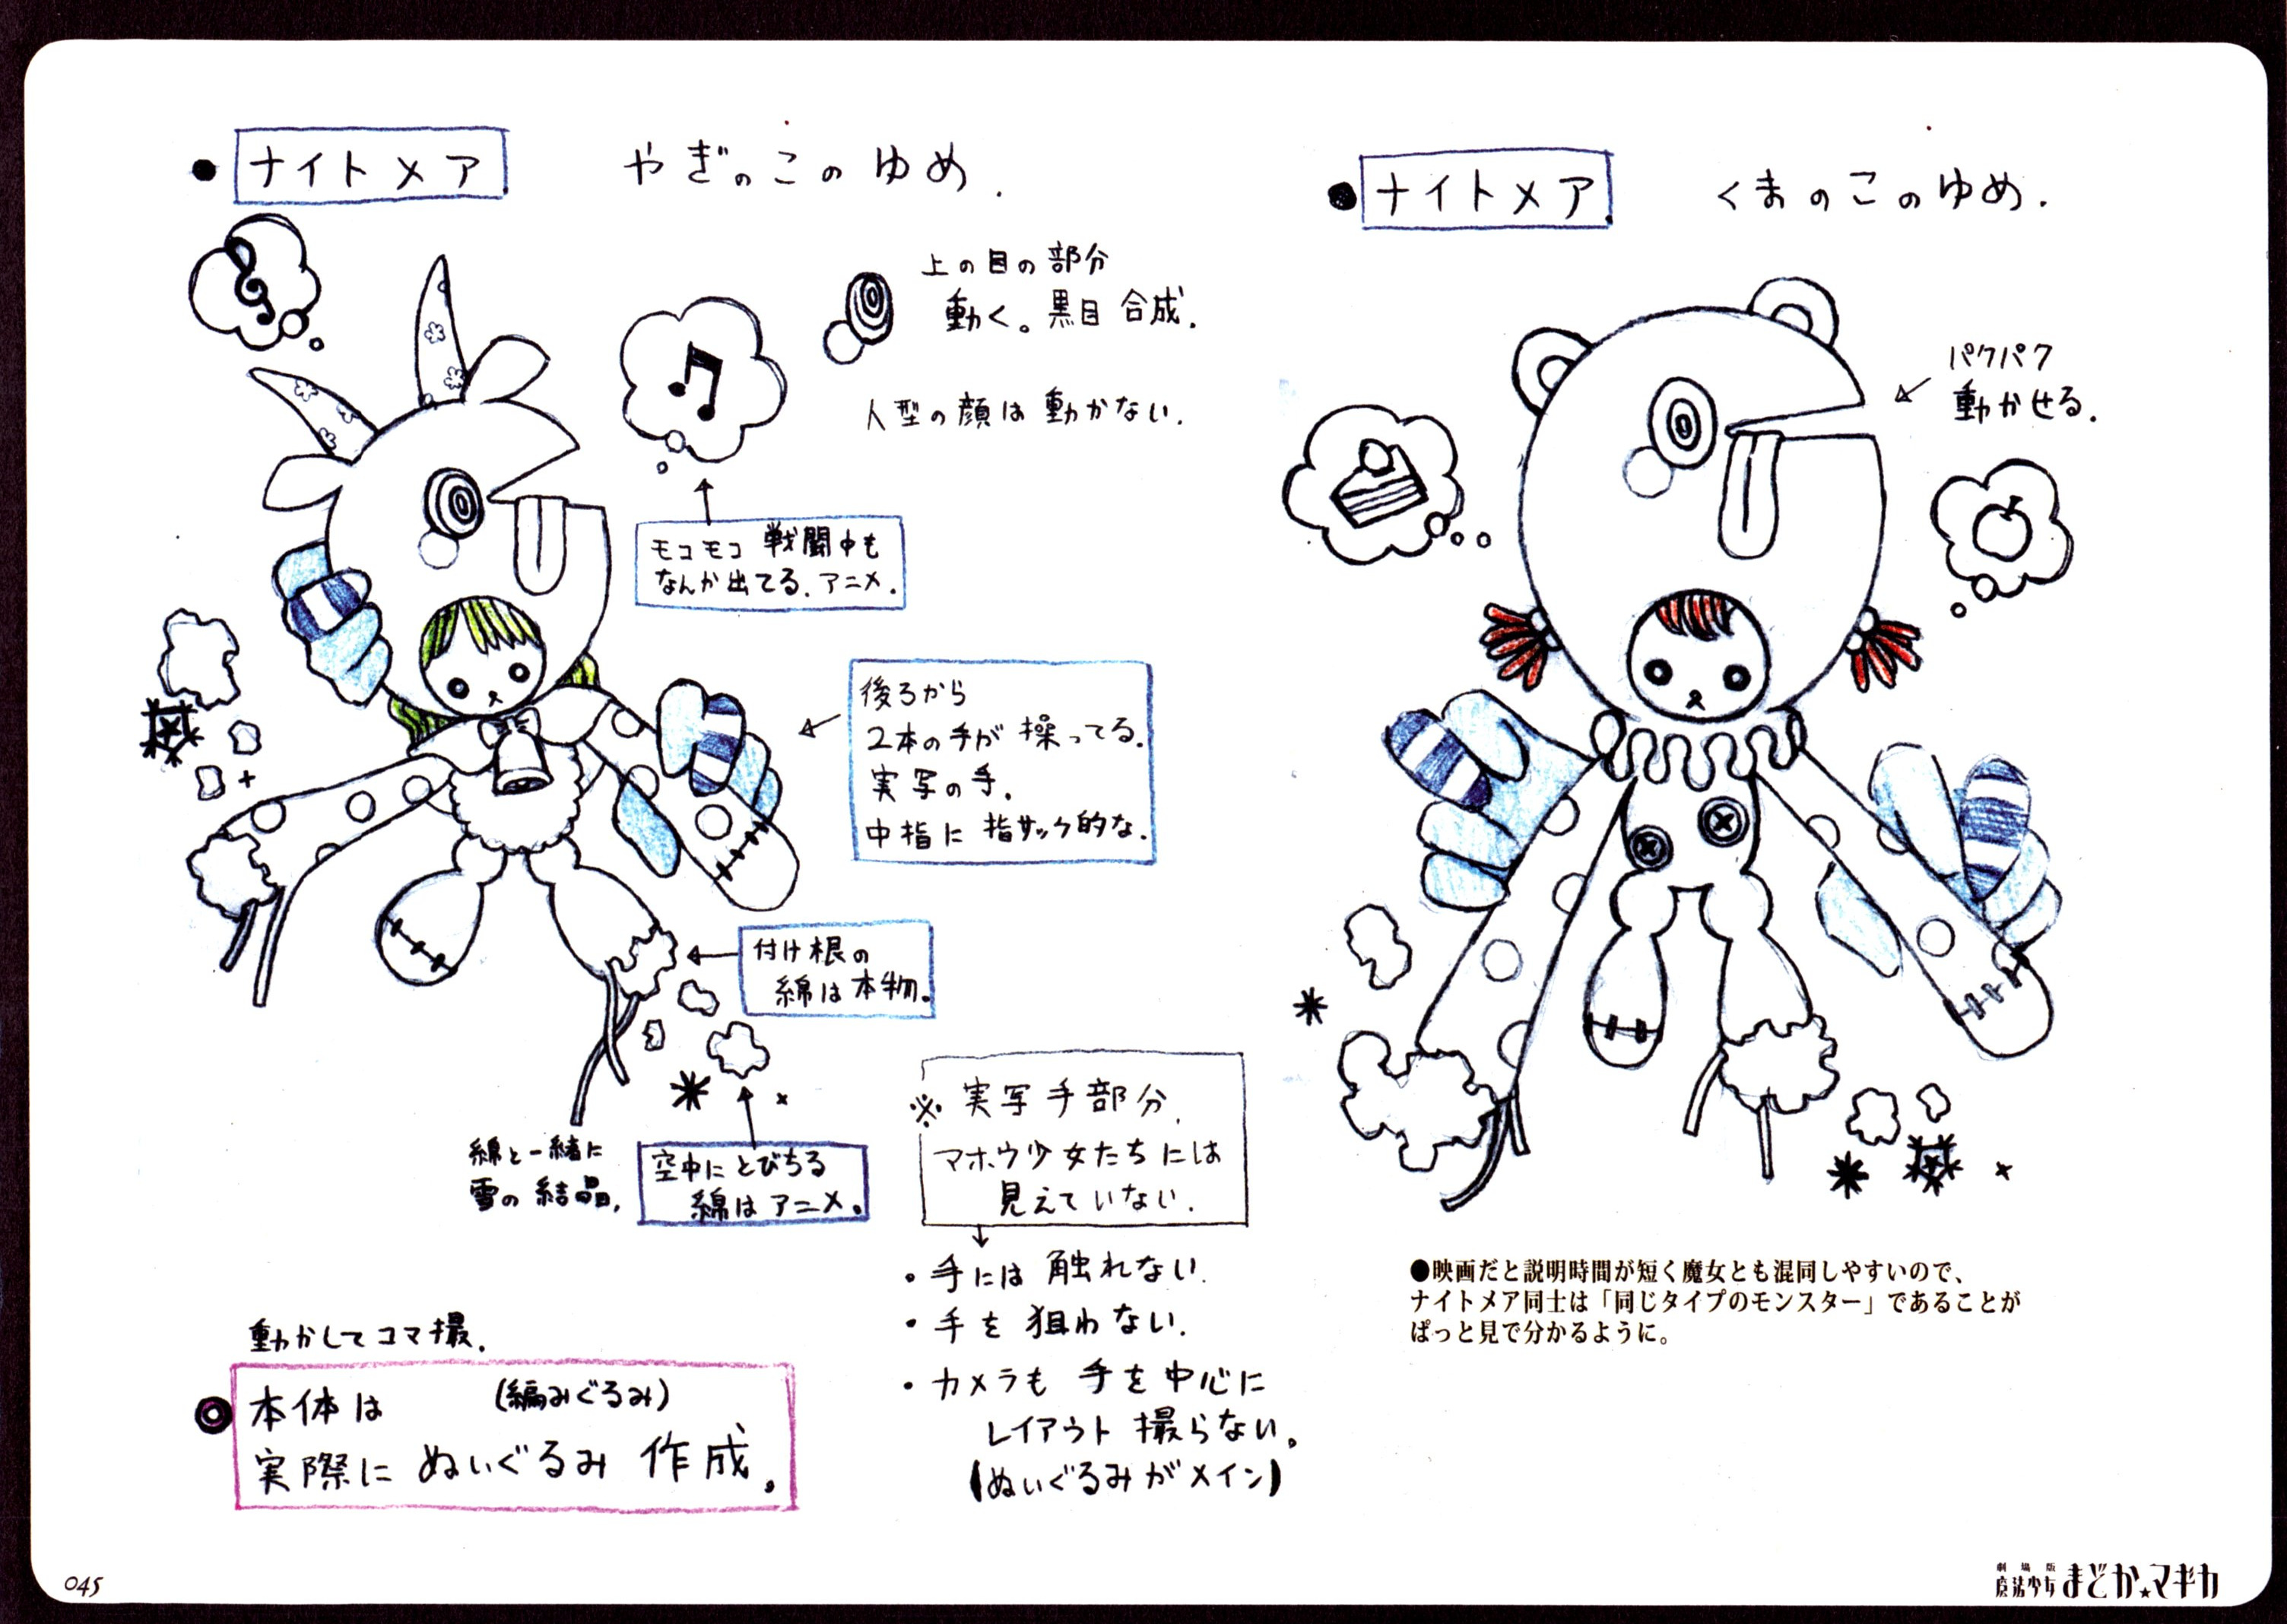 ●ナイトメア. やぎのこのゆめ.
上の目の部分
動く。黒目 合成.
人型の顔は 動かない.
モコモコ 戦闘中も
なんか出てる. アニメ.
後ろから
2本の手が 操ってる.
実写の手.
中指に 指サック的な.
付け根の
綿は本物.
綿と一緒に
雪の結晶.
空中に とびちる
綿は アニメ。
※実写 手部分.
マホウ少女たちには
見えていない.
・手には 触れない.
・手を 狙わない.
・カメラも 手を中心に
レイアウト 撮らない。
(ぬいぐるみがメイン)
動かしてコマ撮.
◎本体は (編みぐるみ)
実際に ぬいぐるみ 作成。
●ナイトメア. くまのこのゆめ.
パクパク
動かせる.
●映画だと説明時間が短く魔女とも混同しやすいので、
ナイトメア同士は「同じタイプのモンスター」であることが
ぱっと見で分かるように。
045
劇場版
魔法少女まどか★マギカ